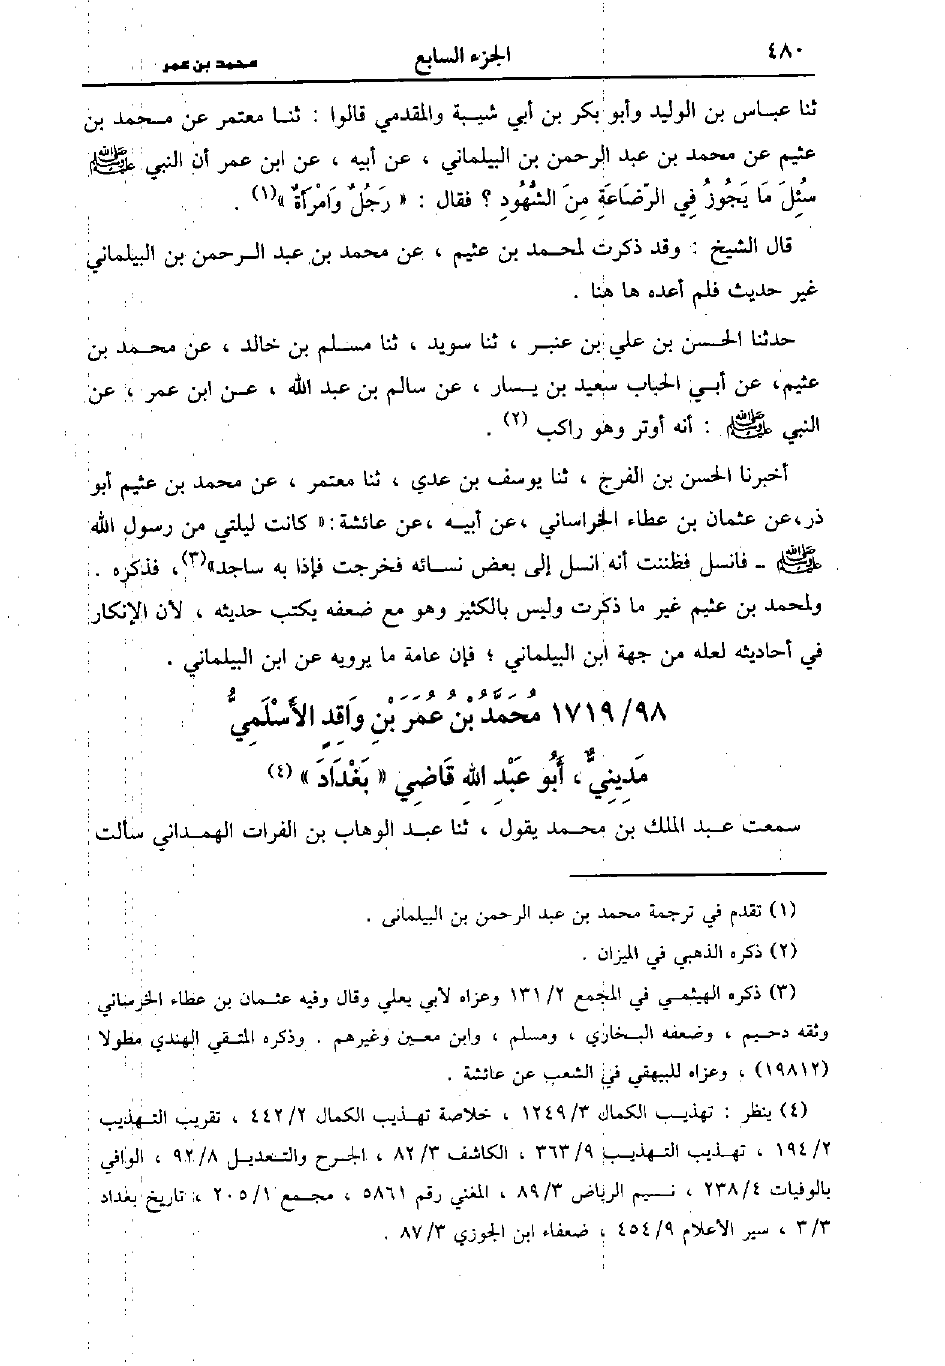 ٤٨٠ الجزء السابع محمد بن عمر
ثنا عباس بن الوليد وأبو بكر بن أبي شيبة والمقدمي قالوا : ثنا معتمر عن محمد بن
عثيم عن محمد بن عبد الرحمن بن البيلماني ، عن أبيه ، عن ابن عمر أن النبي ﷺ
سُئِلَ مَا يَجُوزُ فِي الرَّضَاعَةِ مِنَ الشُّهُودِ ؟ فقال : « رَجُلٌ وَامْرَأَةٌ »(١) .
قال الشيخ : وقد ذكرت لمحمد بن عثيم ، عن محمد بن عبد الرحمن بن البيلماني
غير حديث فلم أعده ها هنا .
حدثنا الحسن بن علي بن عنبر ، ثنا سويد ، ثنا مسلم بن خالد ، عن محمد بن
عثيم، عن أبي الحباب سعيد بن يسار ، عن سالم بن عبد الله ، عن ابن عمر ، عن
النبي ﷺ : أنه أوتر وهو راكب (٢) .
أخبرنا الحسن بن الفرج ، ثنا يوسف بن عدي ، ثنا معتمر ، عن محمد بن عثيم أبو
ذر، عن عثمان بن عطاء الخراساني ، عن أبيه ، عن عائشة : « كانت ليلتي من رسول الله
ﷺ - فانسل فظننت أنه انسل إلى بعض نسائه فخرجت فإذا به ساجد»(٣)، فذكره .
ولمحمد بن عثيم غير ما ذكرت وليس بالكثير وهو مع ضعفه يكتب حديثه ، لأن الإنكار
في أحاديثه لعله من جهة ابن البيلماني ؛ فإن عامة ما يرويه عن ابن البيلماني .
١٧١٩/٩٨ مُحَمَّدُ بْنُ عُمَرَ بْنِ وَاقِدِ الأَسْلَمِيُّ
مَدِينِيٌّ ، أَبُو عَبْدِ اللهِ قَاضِي « بَغْدَادَ » (٤)
سمعت عبد الملك بن محمد يقول ، ثنا عبد الوهاب بن الفرات الهمداني سألت
(١) تقدم في ترجمة محمد بن عبد الرحمن بن البيلمانى .
(٢) ذكره الذهبي في الميزان .
(٣) ذكره الهيثمي في المجمع ١٣١/٢ وعزاه لأبي يعلي وقال وفيه عثمان بن عطاء الخرساني
وثقه دحيم ، وضعفه البخاري ، ومسلم ، وابن معين وغيرهم . وذكره المتقي الهندي مطولا
(١٩٨١٢) ، وعزاه للبيهقي في الشعب عن عائشة .
(٤) ينظر : تهذيب الكمال ١٢٤٩/٣ ، خلاصة تهذيب الكمال ٤٤٢/٢ ، تقريب التهذيب
١٩٤/٢ ، تهذيب التهذيب ٣٦٣/٩ ، الكاشف ٨٢/٣ ، الجرح والتعديل ٩٢/٨ ، الوافي
بالوفيات ٢٣٨/٤ ، نسيم الرياض ٨٩/٣ ، المغني رقم ٥٨٦١ ، مجمع ٢٠٥/١ ، تاريخ بغداد
٣/٣ ، سير الأعلام ٤٥٤/٩ ، ضعفاء ابن الجوزي ٨٧/٣ .